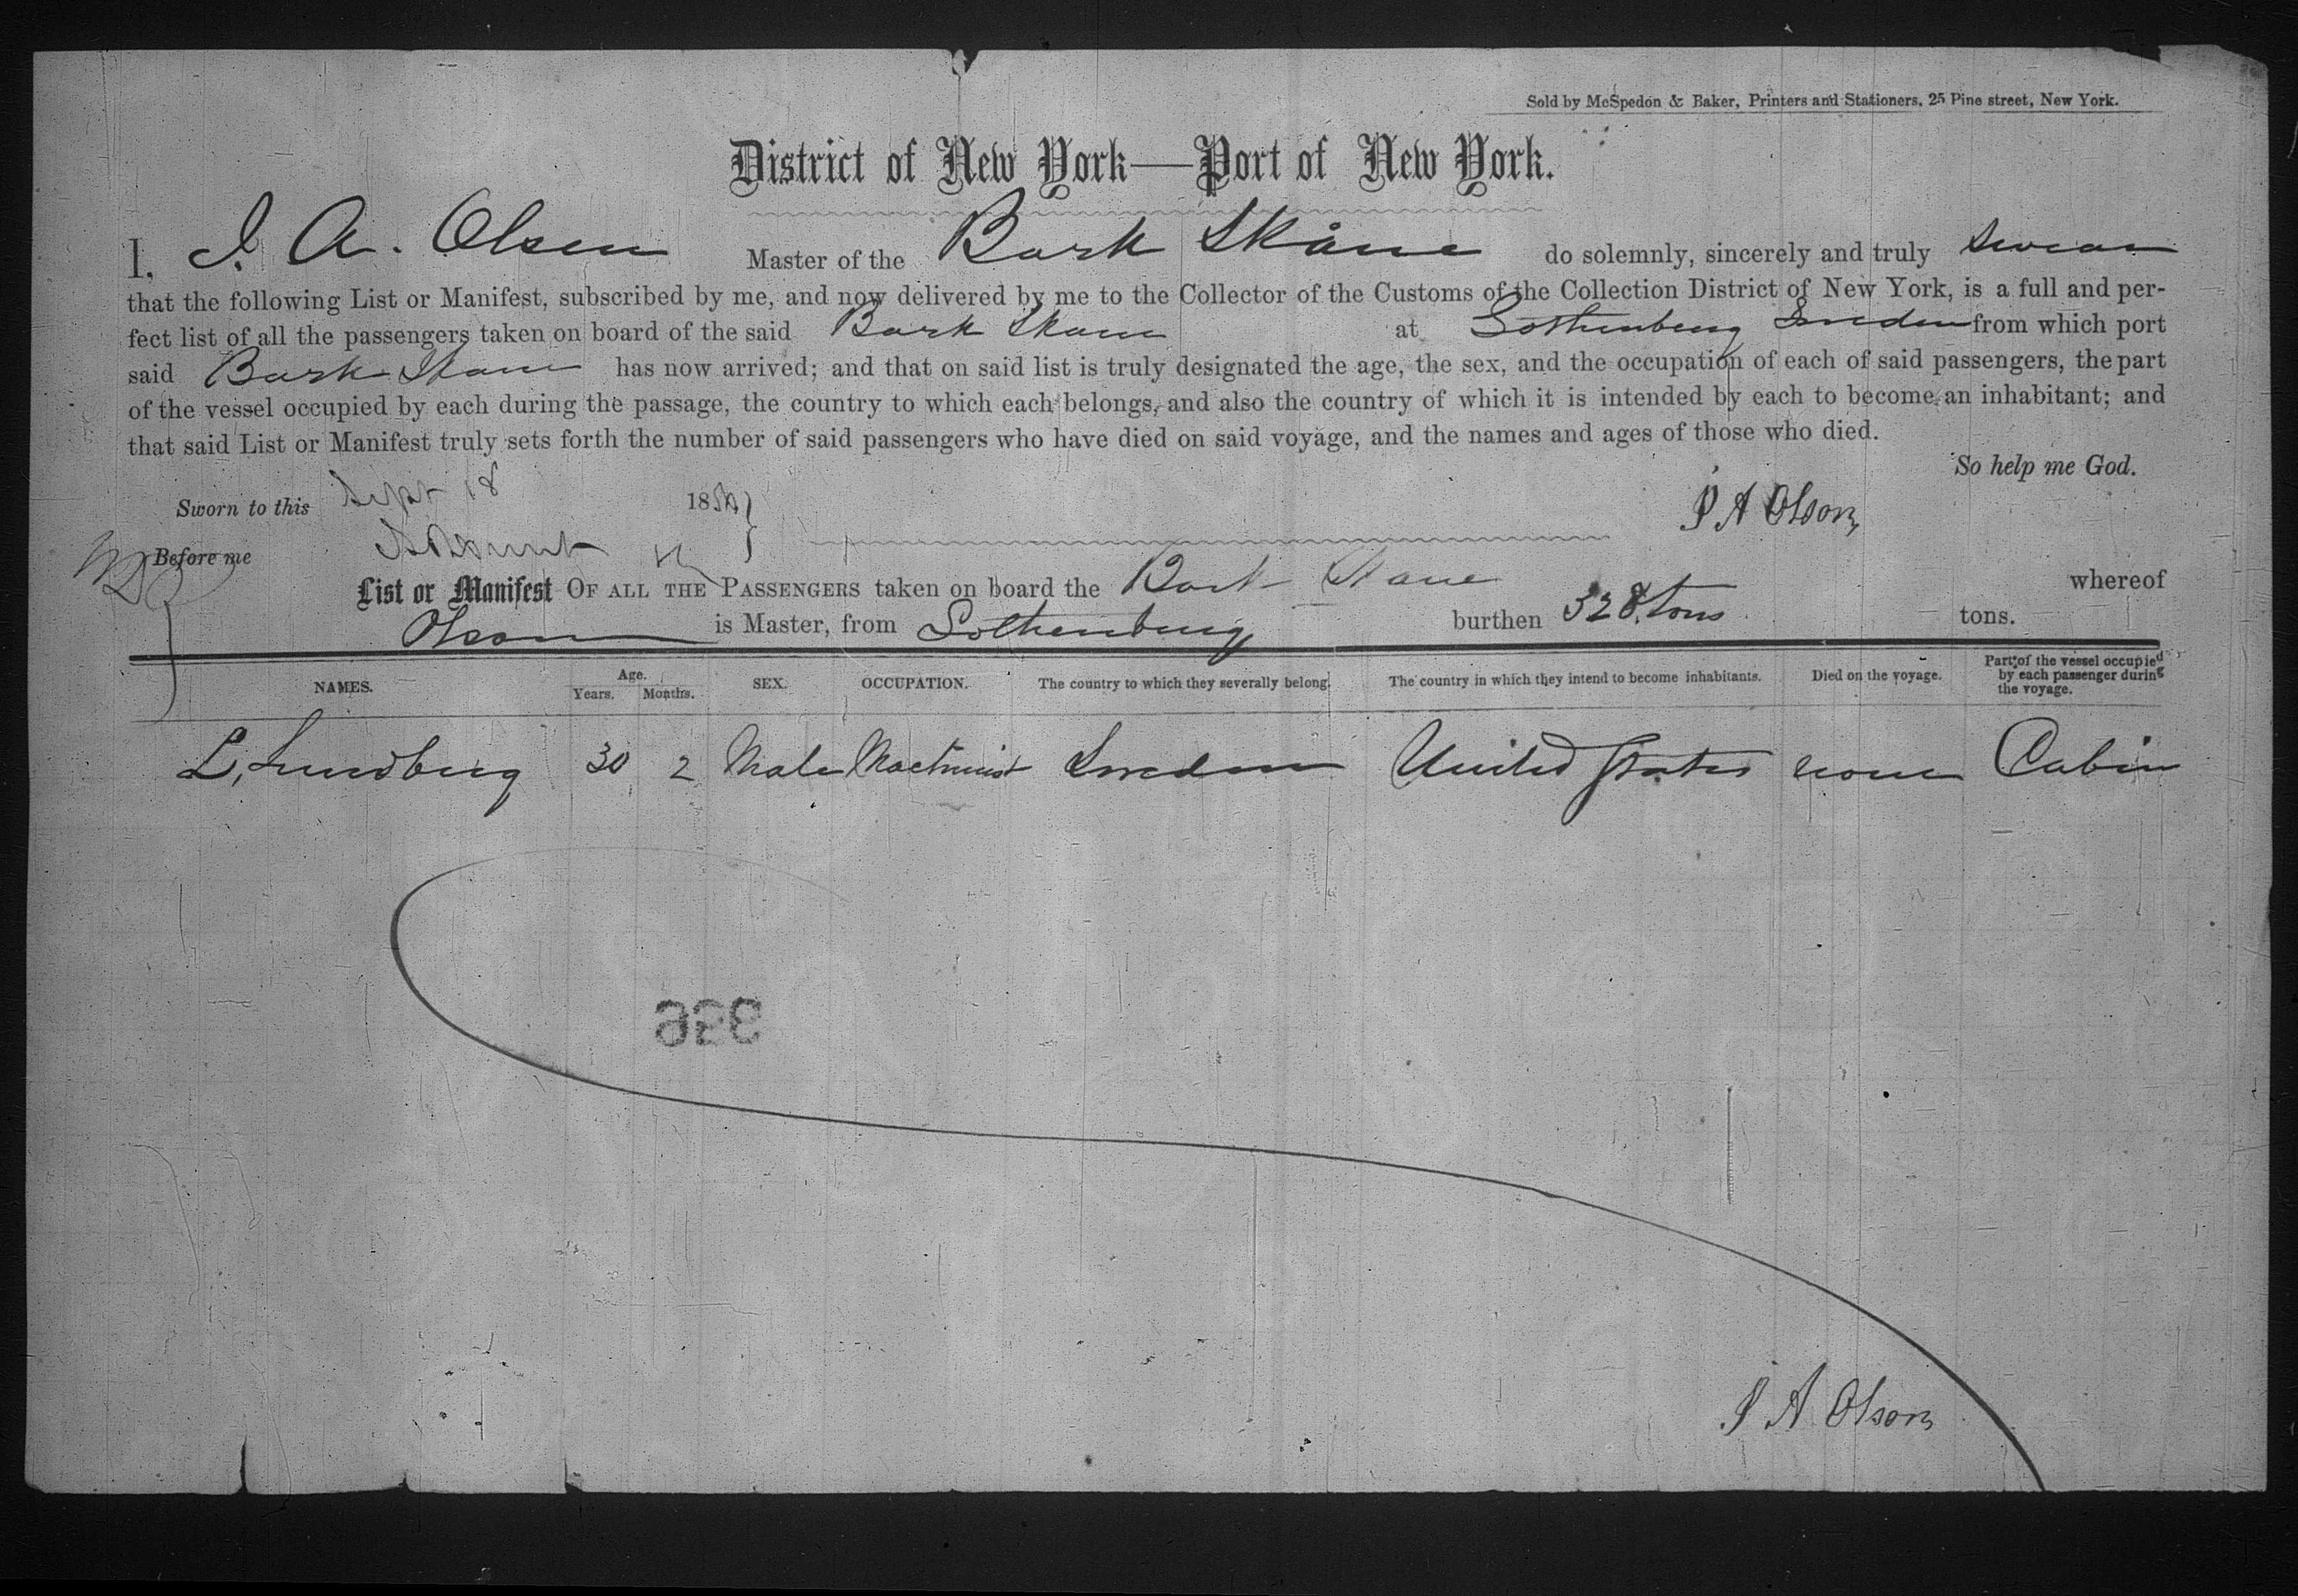 Sold by McSpedon & Baker, Printers and Stationers, 25 Pine street, New York.
District of New York—Port of New York.
I, J. A. Olsen Master of the Bark Skåne do solemnly, sincerely and truly swear
that the following List or Manifest, subscribed by me, and now delivered by me to the Collector of the Customs of the Collection District of New York, is a full and per-
fect list of all the passengers taken on board of the said Bark Skane at Gothenburg Sweden from which port
said Bark Skane has now arrived; and that on said list is truly designated the age, the sex, and the occupation of each of said passengers, the part
of the vessel occupied by each during the passage, the country to which each belongs, and also the country of which it is intended by each to become an inhabitant; and
that said List or Manifest truly sets forth the number of said passengers who have died on said voyage, and the names and ages of those who died.
So help me God.
Sworn to this Sept 18 18
J A Olson
Before me
List or Manifest OF ALL THE PASSENGERS taken on board the Bark Skane whereof
Olson is Master, from Gothenburg burthen 328 tons tons.
NAMES. Age. Years. Months. SEX. OCCUPATION. The country to which they severally belong. The country in which they intend to become inhabitants. Died on the voyage. Part of the vessel occupied by each passenger during the voyage.
L. Lundberg 30 2 Male Machinist Sweden United States none Cabin
336
J A Olson